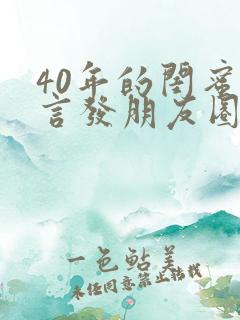 40年的閨蜜
言發朋友圈
一色鮎美
未经同意禁止转载